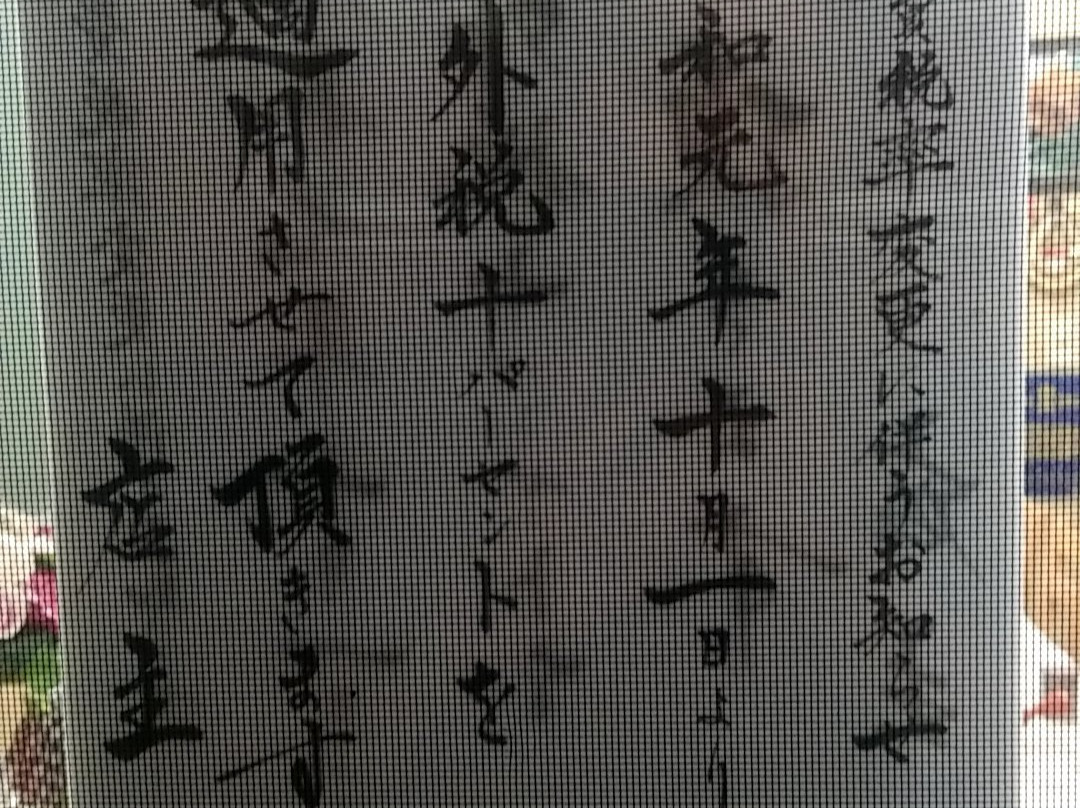 費税率変更に伴うお知らせ
和元年十月一日より
外税十パーセントを
適用させて頂きます
店主